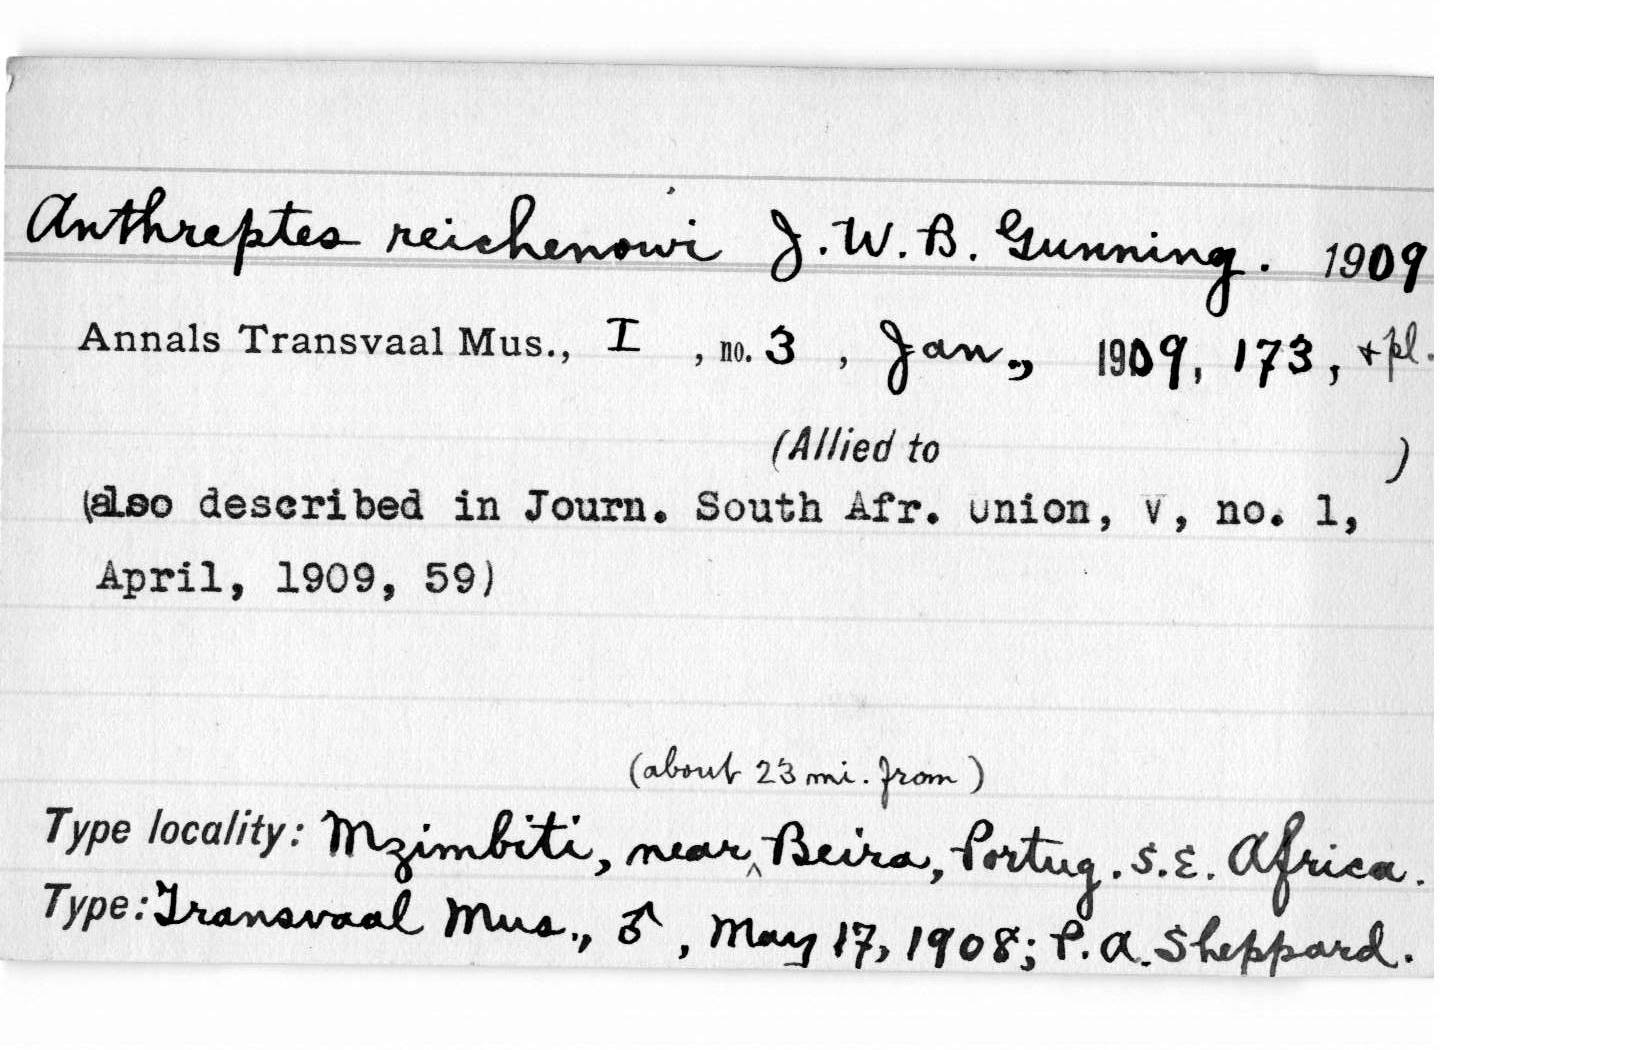 Anthreptes reichenowi J. W. B. Gunning. 1909
Annals Transvaal Mus., I , no. 3 , Jan., 1909, 173, + pl.
(Allied to )
(also described in Journ. South Afr. Union, V, no. 1,
April, 1909, 59)
(about 23 mi. from)
Type locality: Mzimbiti, near ^ Beira, Portug. S.E. Africa.
Type: Transvaal Mus., ♂, May 17, 1908; P. A. Sheppard.